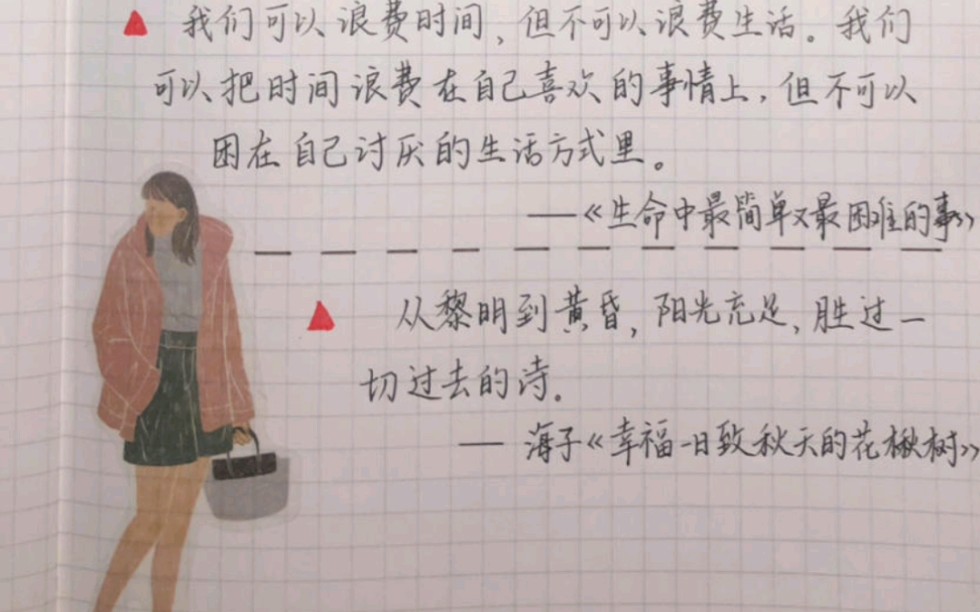 我们可以浪费时间，但不可以浪费生活。我们
可以把时间浪费在自己喜欢的事情上，但不可以
困在自己讨厌的生活方式里。
——《生命中最简单又最困难的事》
从黎明到黄昏，阳光充足，胜过一
切过去的诗。
— 海子《幸福一日致秋天的花楸树》